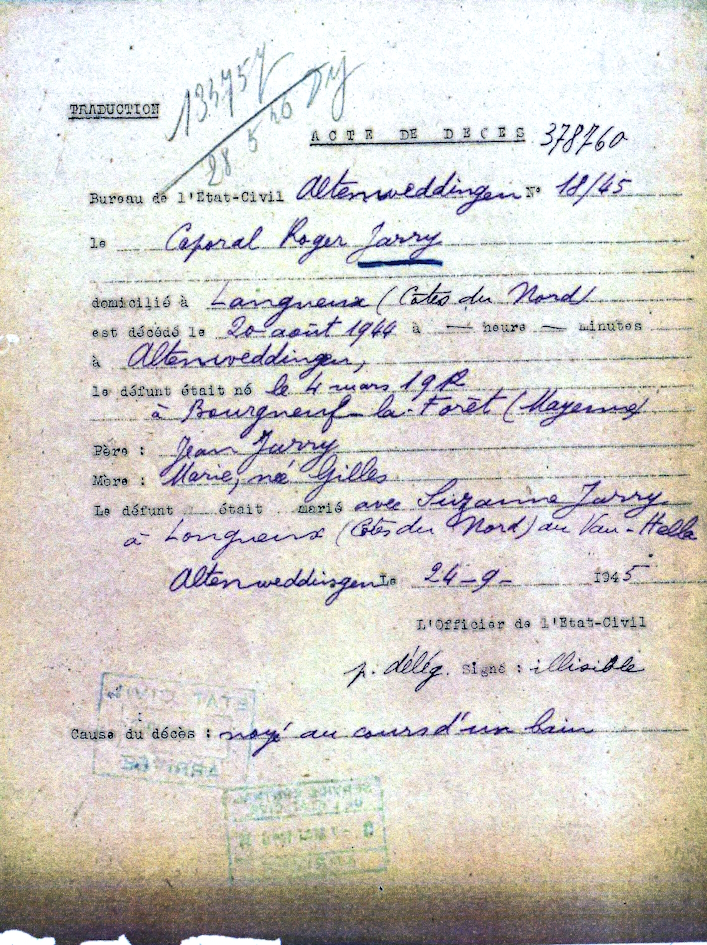 TRADUCTION
133757
28 5 46
ACTE DE DECES 378760
Bureau de l'Etat-Civil Altenweddingen N° 18/45
le Caporal Roger Jarry
domicilié à Langueux (Côtes du Nord)
est décédé le 20 août 1944 à — heure — minutes
à Altenweddingen,
le défunt était né le 4 mars 19
à Bourgneuf-la-Forêt (Mayenne)
Père : Jean Jarry
Mère : Marie, née Gilles
Le défunt était marié avec Suzanne Jarry
à Longueux (Côtes du Nord) au Vau-Hella
Altenweddingen Le 24-9- 1945
L'Officier de l'Etat-Civil
p. délég. Signé : illisible
ETAT CIVIL
ARRIVÉE
Cause du décès : noyé au cours d'un bain